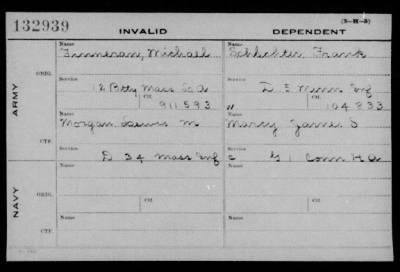 (3-H-3)
132939 INVALID DEPENDENT
Name Name
Finneran, Michael Schlichter, Frank
ORIG.
Service Service
12 Btty Mass L A D 5 Minn Inf
Ctf. Ctf.
911593 " 104833
ARMY
Name Name
Morgan, Lewis M Marcy James S
CTF.
Service
D 34 Mass Inf C G 1 Conn H A
Name Name
ORIG.
Service Ctf. Service Ctf.
NAVY
Name Name
CTF.
Service Service